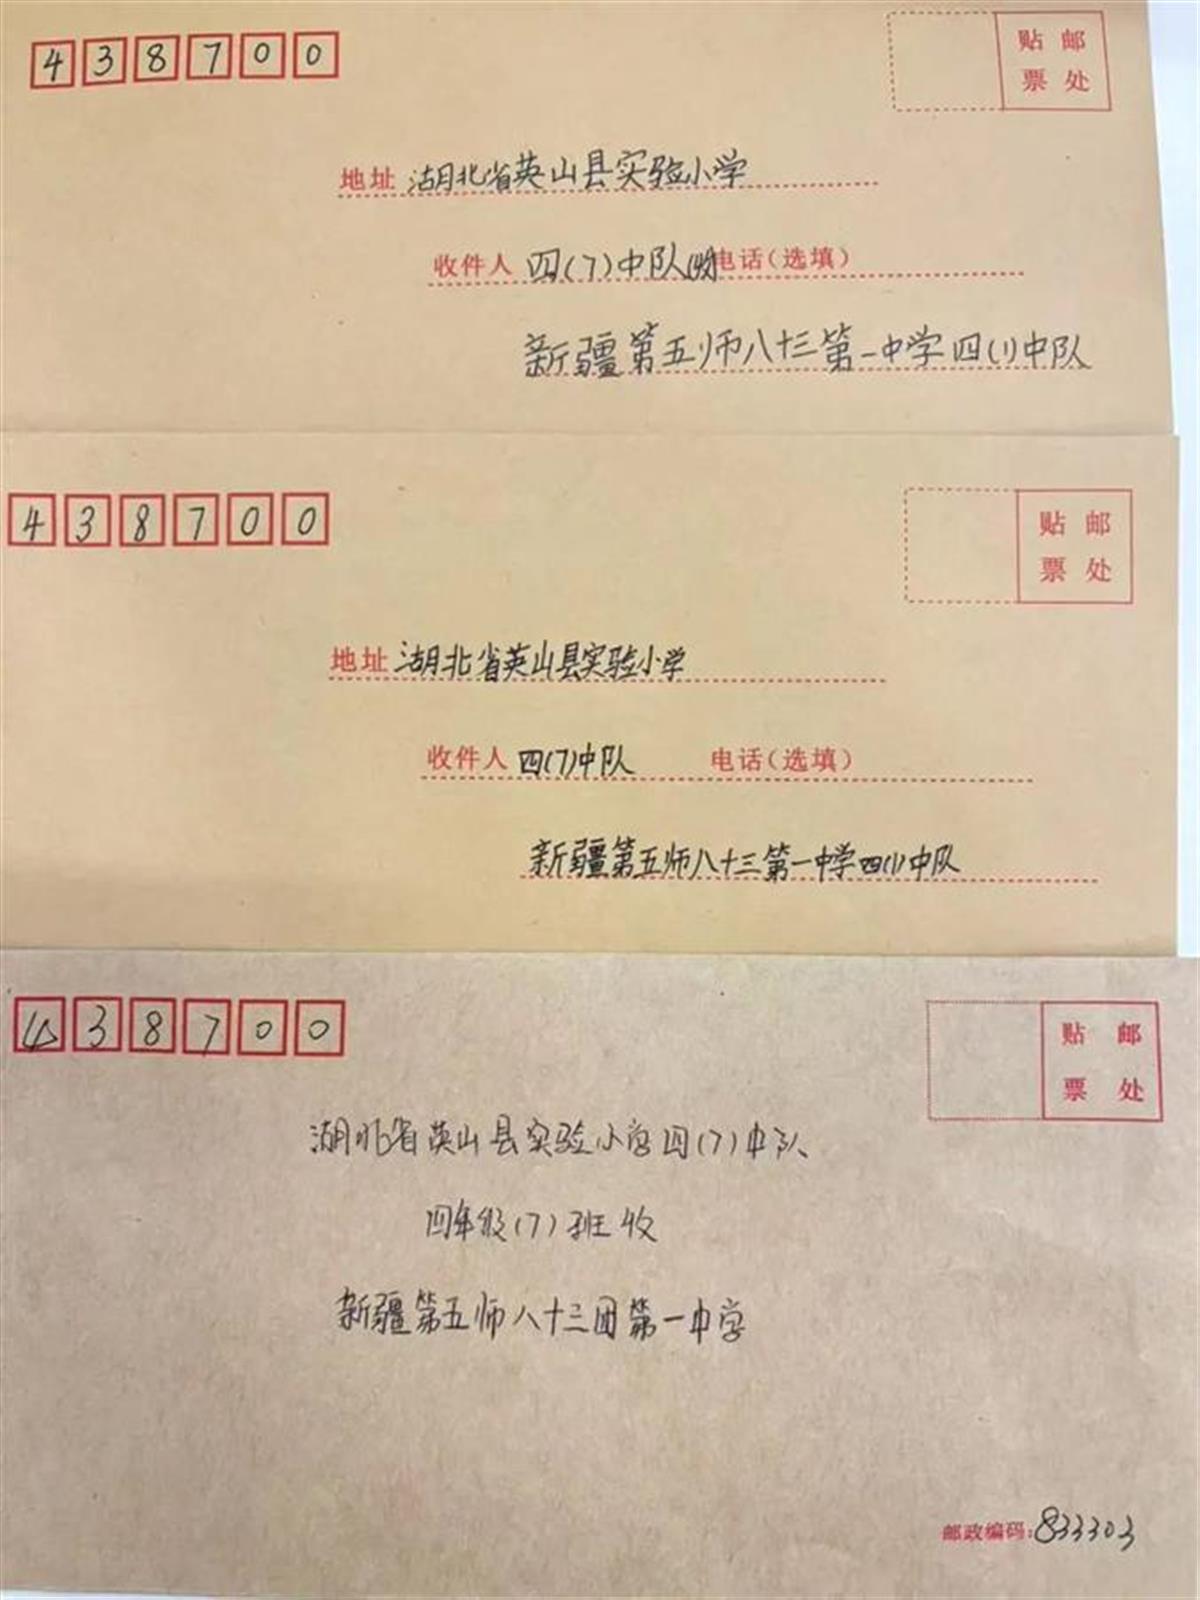 438700
贴 邮
票 处
地址 湖北省英山县实验小学
收件人 四(7)中队(收) 电话(选填)
新疆第五师八十三第一中学四(1)中队
438700
贴 邮
票 处
地址 湖北省英山县实验小学
收件人 四(7)中队 电话(选填)
新疆第五师八十三第一中学四(1)中队
438700
贴 邮
票 处
湖北省英山县实验小学四(7)中队
四年级(7)班收
新疆第五师八十三团第一中学
邮政编码:833303